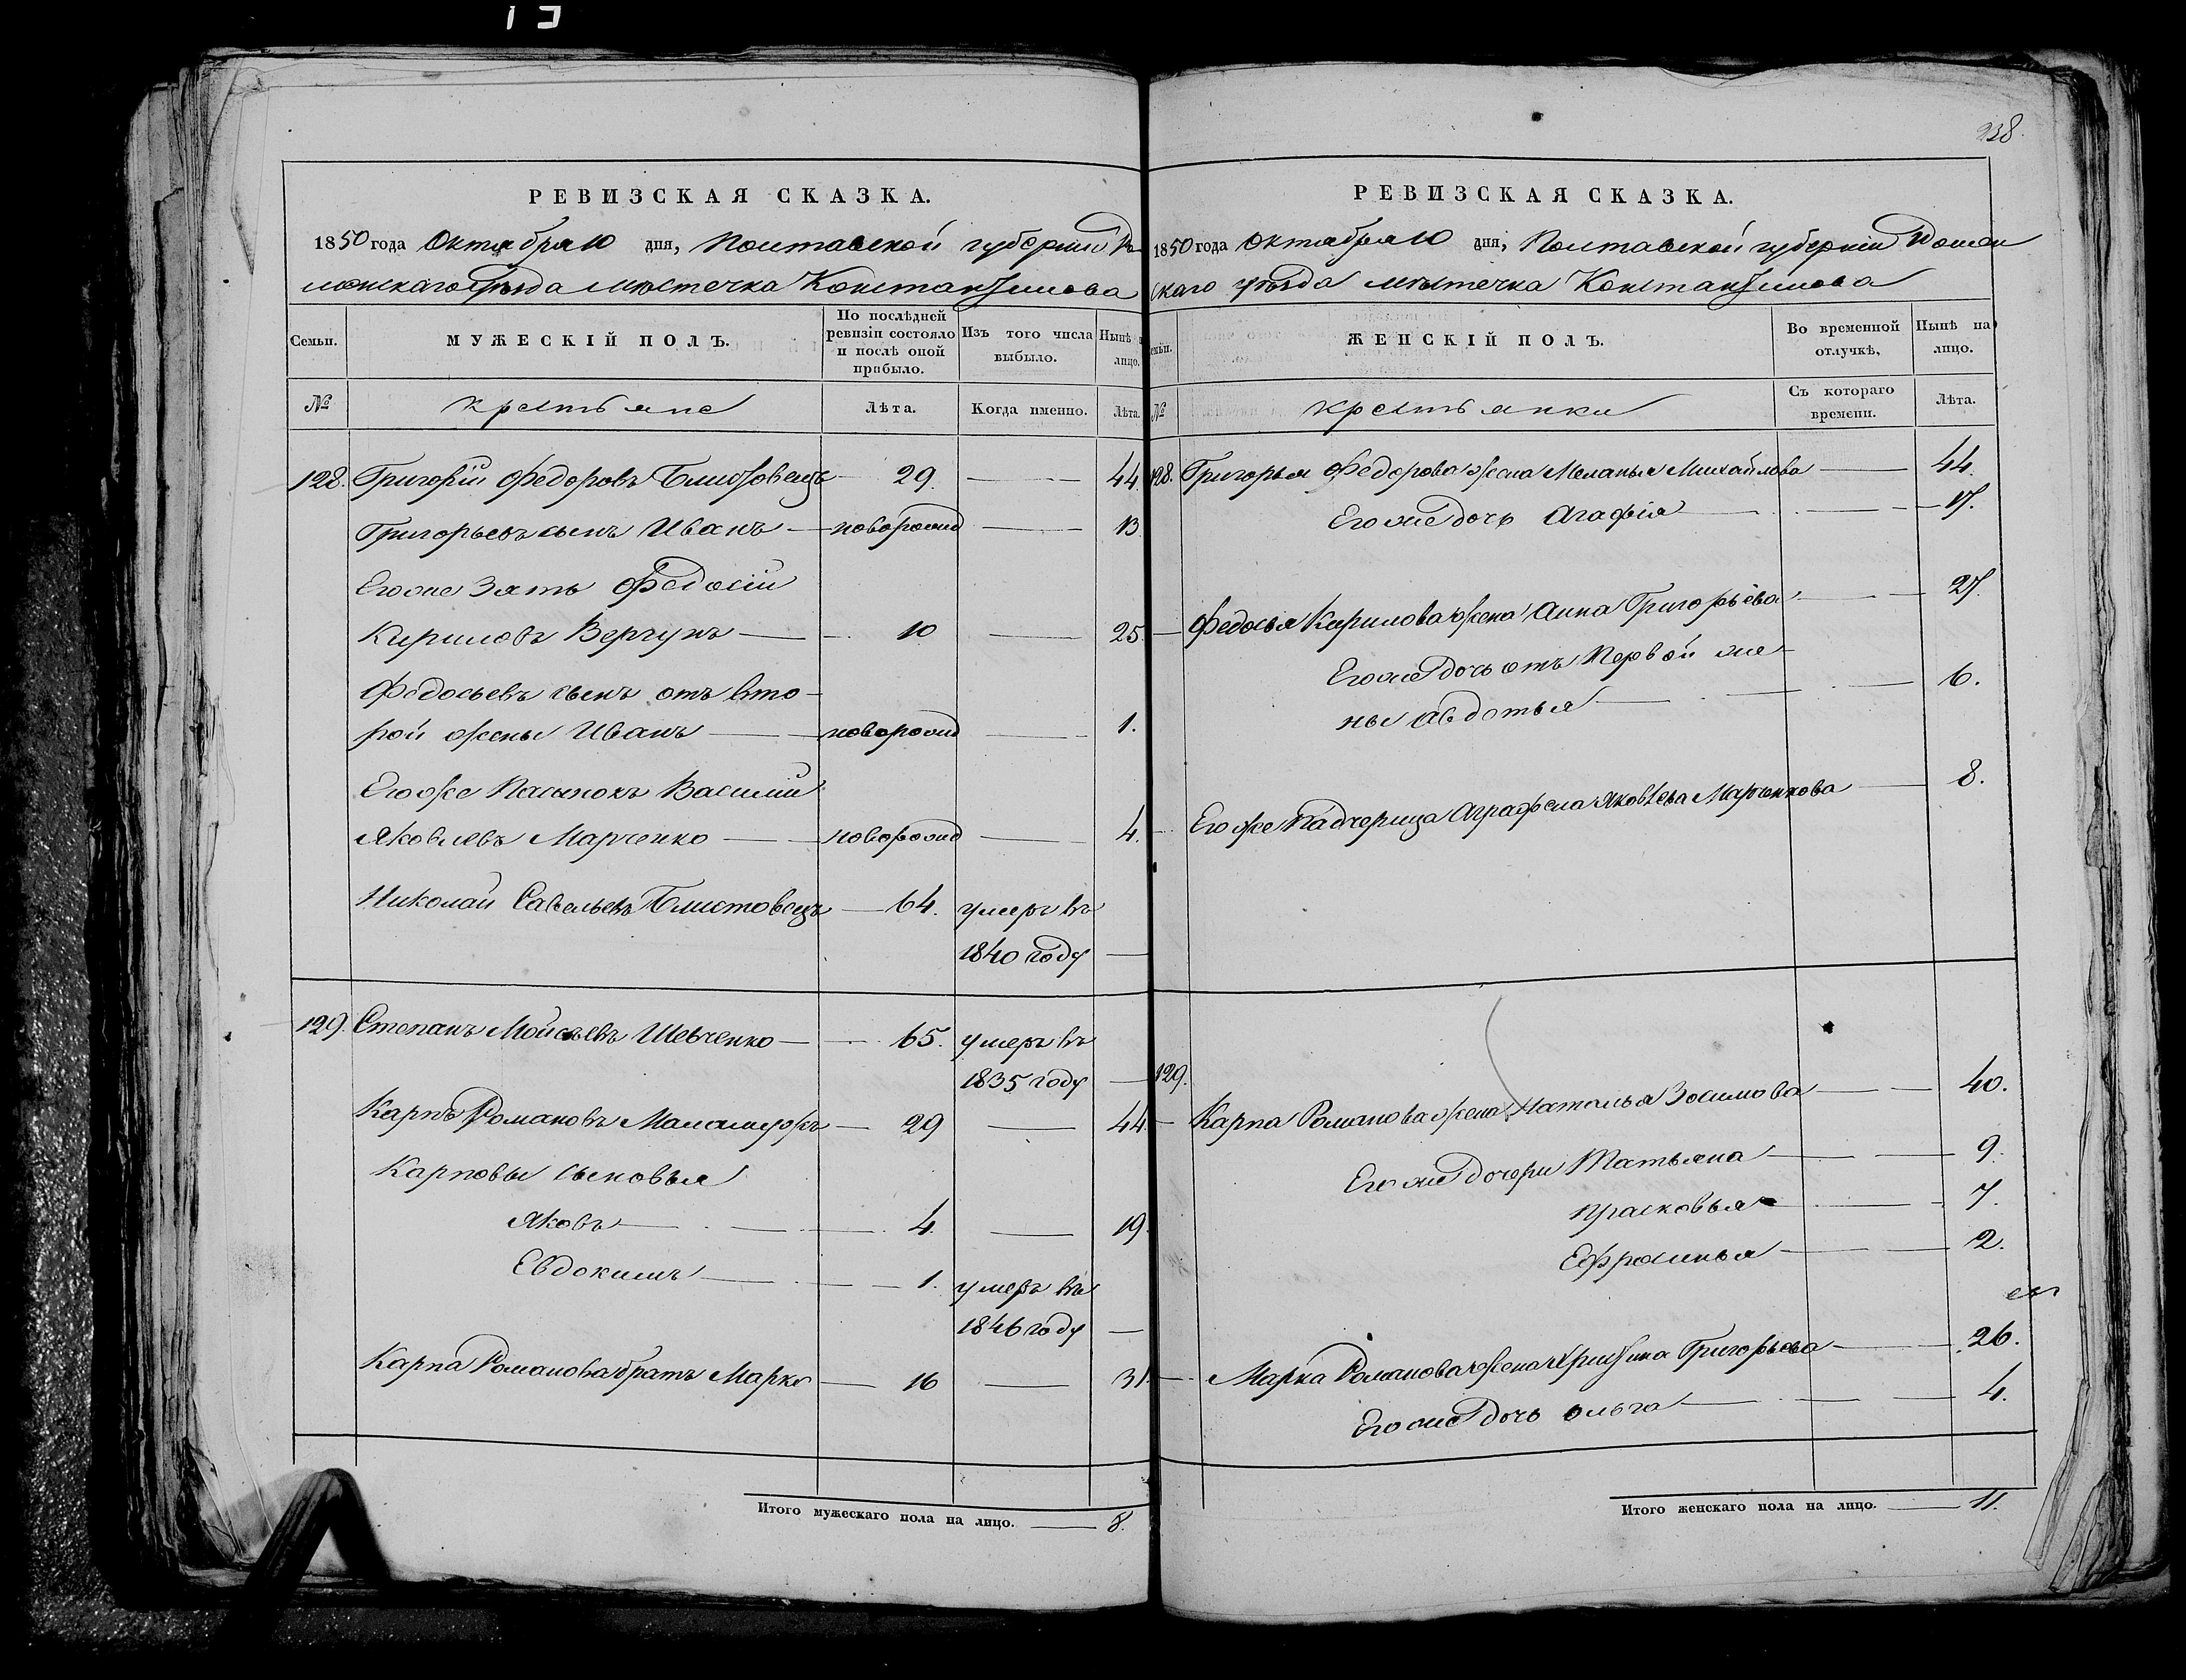 238.
РЕВИЗСКАЯ СКАЗКА.
1850 года Октября 10 дня, Полтавской губернии Ро-
менскаго уѣзда мѣстечка Константинова
Семьи. МУЖЕСКІЙ ПОЛЪ. По послѣдней ревизіи состояло и послѣ оной прибыло. Изъ того числа выбыло. Нынѣ лицо.
№ Крестьяне Лѣта. Когда именно. Лѣта.
128. Григорій Федоровъ Блистовецъ 29. 44
Григорьевъ сынъ Иванъ новорожд 13
Егоже Зять Федосій
Кириловъ Вергунъ 10 25.
Федосьевъ сынъ отъ вто-
рой жены Иванъ новорожд 1.
Егоже Пасынокъ Василій
Яковлевъ Марченко новорожд 4.
Николай Савельевъ Блистовецъ 64. умеръ въ
1840 году
129. Степанъ Мойсѣевъ Шевченко 65. умеръ въ
1835 году
Карпъ Романовъ 29 44
Карповы сыновья
Яковъ 4. 19
Евдокимъ 1. умеръ въ
1846 году
Карпа Романова братъ Марко 16 31
Итого мужескаго пола на лицо. 8.
РЕВИЗСКАЯ СКАЗКА.
1850 года Октября 10 дня, Полтавской губерніи Ромен
скаго уѣзда мѣстечка Константинова
семьи. ЖЕНСКІЙ ПОЛЪ. Во временной отлучкѣ. Нынѣ на лицо.
№ Крестьянки Съ котораго времени. Лѣта.
128. Григорья Федорова жена Меланья Михайлова 44.
Егоже дочь Агафія 17.
Федосья Кирилова жена Анна Григорьева 27.
Егоже дочь отъ Первой же-
ны Авдотья 6.
Егоже Падчерица Аграфена Яковлева Марченкова 8.
129.
Карпа Романова жена Наталья Зосимова 40.
Егоже дочери Татьяна 9.
Прасковья 7.
Ефросинья 2.
Марка Романова жена Христина Григорьева 26.
Егоже дочь Ольга 4.
Итого женскаго пола на лицо. 11.